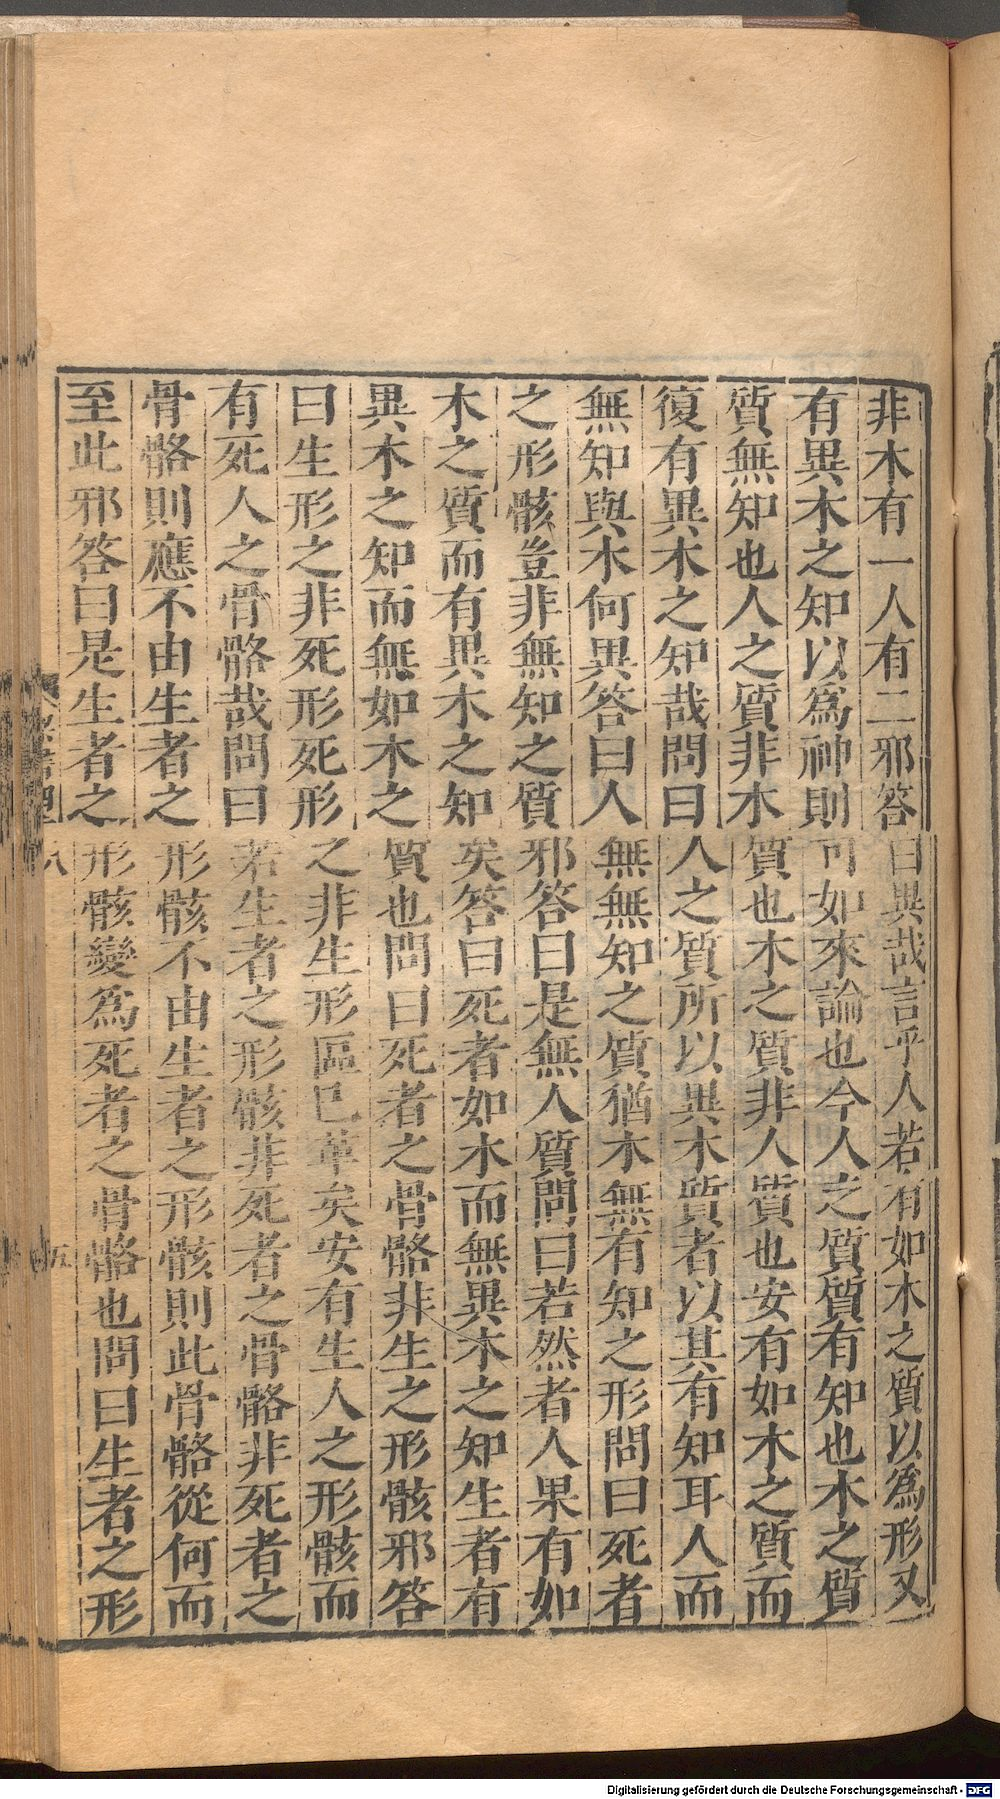 非木有一人有二邪答曰異哉言乎人若有如木之質以為形又
有異木之知以為神則可如來論也今人之質質有知也木之質
質無知也人之質非木質也木之質非人質也安有如木之質而
復有異木之知哉問曰人之質所以異木質者以其有知耳人而
無知與木何異答曰人無無知之質猶木無有知之形問曰死者
之形骸豈非無知之質邪答曰是無人質問曰若然者人果有如
木之質而有異木之知矣答曰死者如木而無異木之知生者有
異木之知而無如木之質也問曰死者之骨骼非生之形骸邪答
曰生形之非死形死形之非生形區已革矣安有生人之形骸而
有死人之骨骼哉問曰若生者之形骸非死者之骨骼非死者之
骨骼則應不由生者之形骸不由生者之形骸則此骨骼從何而
至此邪答曰是生者之形骸變為死者之骨骼也問曰生者之形
八
五
Digitalisierung gefördert durch die Deutsche Forschungsgemeinschaft - DFG